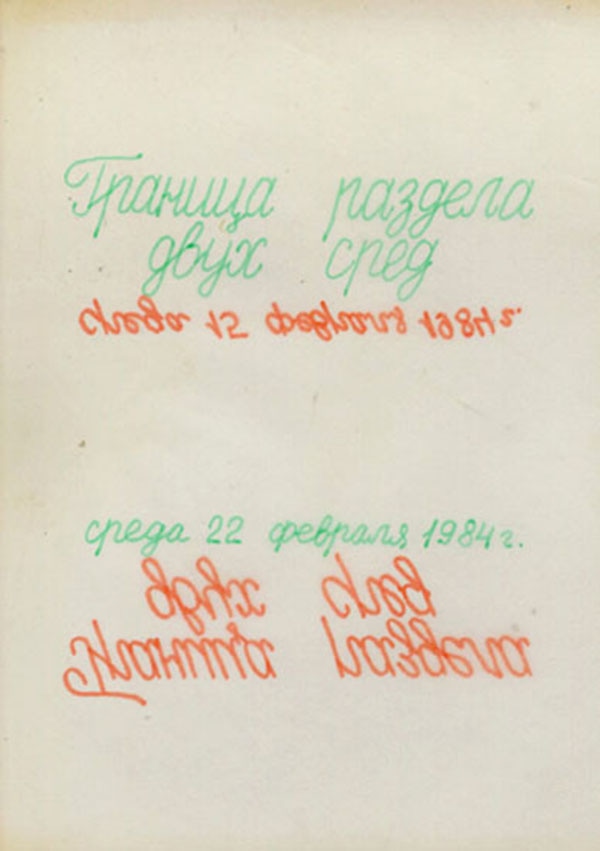 Граница раздела
двух сред
среда 15 февраля 1984 г.
среда 22 февраля 1984 г.
двух сред
Граница раздела